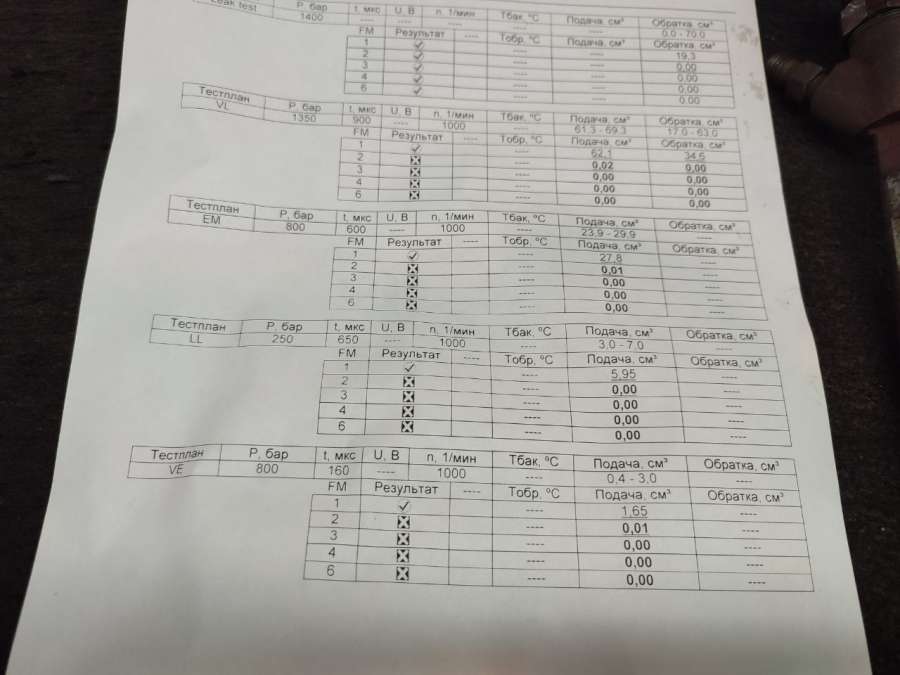 Leak test P, бар t, мкс U, В n, 1/мин Тбак, ºС Подача, см³ Обратка, см³
1400 ---- ---- ---- ---- 0.0 - 70.0
FM Результат ---- Тобр, ºС Подача, см³ Обратка, см³
1 ✓ ---- ---- 19,3
2 ✓ ---- ---- 0,00
3 ✓ ---- ---- 0,00
4 ✓ ---- ---- 0,00
6 ✓ ---- ---- 0,00
Тестплан P, бар t, мкс U, В n, 1/мин Тбак, ºС Подача, см³ Обратка, см³
VL 1350 900 ---- 1000 ---- 61.3 - 69.3 17.0 - 63.0
FM Результат ---- Тобр, ºС Подача, см³ Обратка, см³
1 ✓ ---- 62,1 34,5
2 ☒ ---- 0,02 0,00
3 ☒ ---- 0,00 0,00
4 ☒ ---- 0,00 0,00
6 ☒ ---- 0,00 0,00
Тестплан P, бар t, мкс U, В n, 1/мин Тбак, ºС Подача, см³ Обратка, см³
EM 800 600 ---- 1000 ---- 23.9 - 29.9 ----
FM Результат ---- Тобр, ºС Подача, см³ Обратка, см³
1 ✓ ---- 27,8 ----
2 ☒ ---- 0,01 ----
3 ☒ ---- 0,00 ----
4 ☒ ---- 0,00 ----
6 ☒ ---- 0,00 ----
Тестплан P, бар t, мкс U, В n, 1/мин Тбак, ºС Подача, см³ Обратка, см³
LL 250 650 ---- 1000 ---- 3.0 - 7.0 ----
FM Результат ---- Тобр, ºС Подача, см³ Обратка, см³
1 ✓ ---- 5,95 ----
2 ☒ ---- 0,00 ----
3 ☒ ---- 0,00 ----
4 ☒ ---- 0,00 ----
6 ☒ ---- 0,00 ----
Тестплан P, бар t, мкс U, В n, 1/мин Тбак, ºС Подача, см³ Обратка, см³
VE 800 160 ---- 1000 ---- 0,4 - 3,0 ----
FM Результат ---- Тобр, ºС Подача, см³ Обратка, см³
1 ✓ ---- 1,65 ----
2 ☒ ---- 0,01 ----
3 ☒ ---- 0,00 ----
4 ☒ ---- 0,00 ----
6 ☒ ---- 0,00 ----